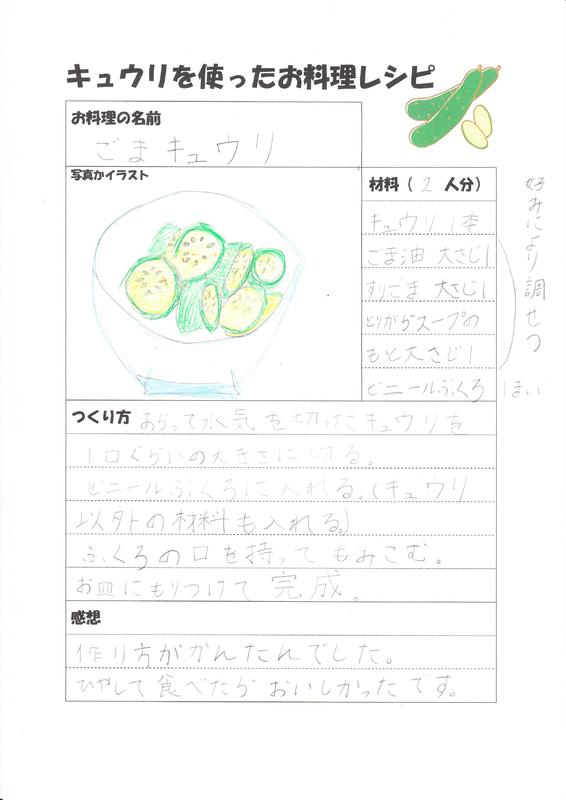 キュウリを使ったお料理レシピ
お料理の名前
ごまキュウリ
写真かイラスト
材料（ 2 人分）
キュウリ 1本
ごま油 大さじ1
すりごま 大さじ1
とりがらスープの
もと大さじ1
ビニールぶくろ 1まい
好みにより調せつ
つくり方 あらって水気を切ったキュウリを
1口ぐらいの大きさに切る。
ビニールぶくろに入れる。(キュウリ
以外の材料も入れる。)
ふくろの口を持ってもみこむ。
お皿にもりつけて完成。
感想
作り方がかんたんでした。
ひやして食べたらおいしかったです。